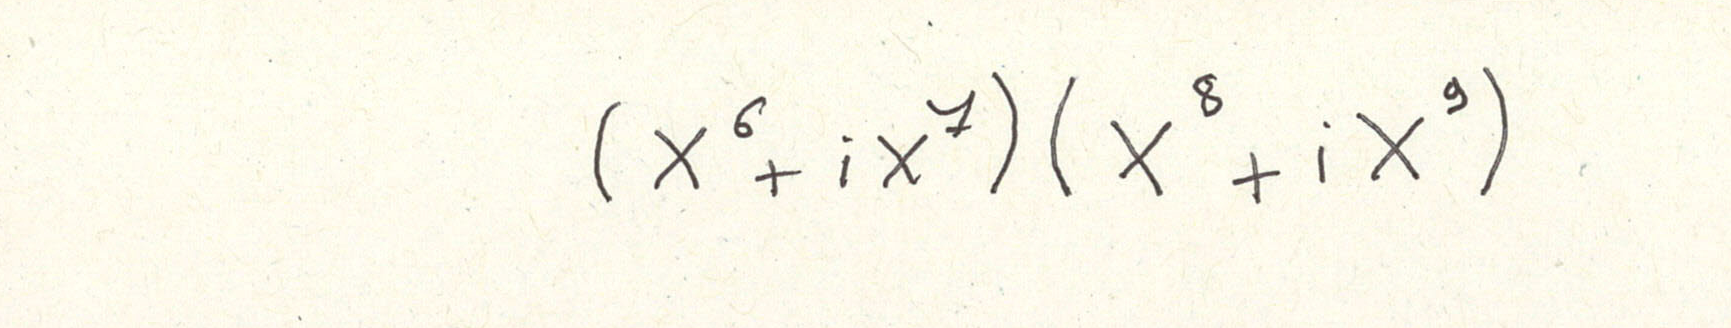 (X⁶ + iX⁷)(X⁸ + iX⁹)